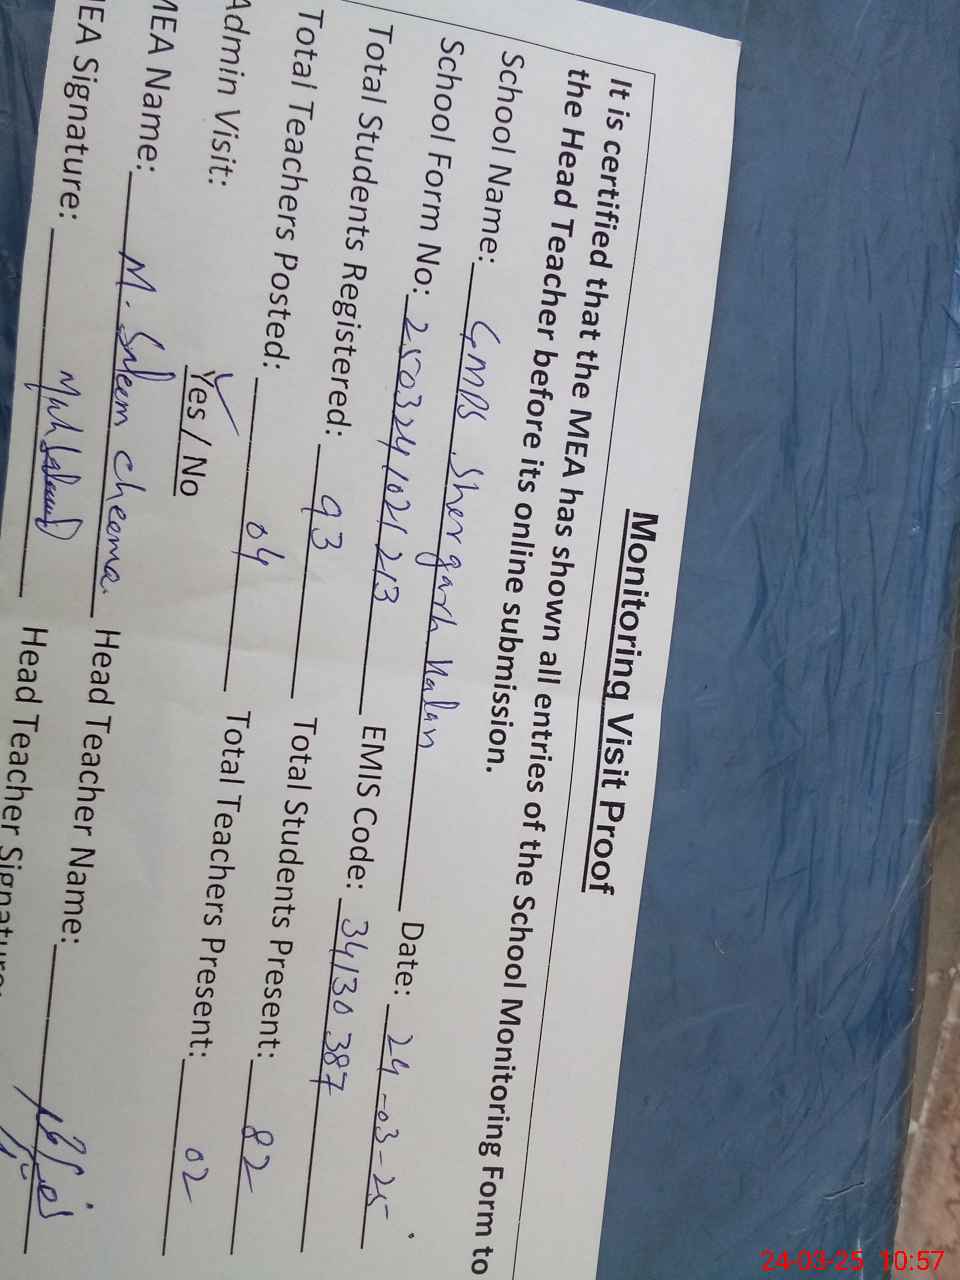 Monitoring Visit Proof
It is certified that the MEA has shown all entries of the School Monitoring Form to
the Head Teacher before its online submission.
School Name: GMPS Shergarh Kalan Date: 24-03-25
School Form No: 250324 1021 213 EMIS Code: 34130387
Total Students Registered: 93 Total Students Present: 82
Total Teachers Posted: 04 Total Teachers Present: 02
Admin Visit: Yes / No
MEA Name: M. Saleem Cheema Head Teacher Name:
MEA Signature: Head Teacher Signature:
24-03-25 10:57